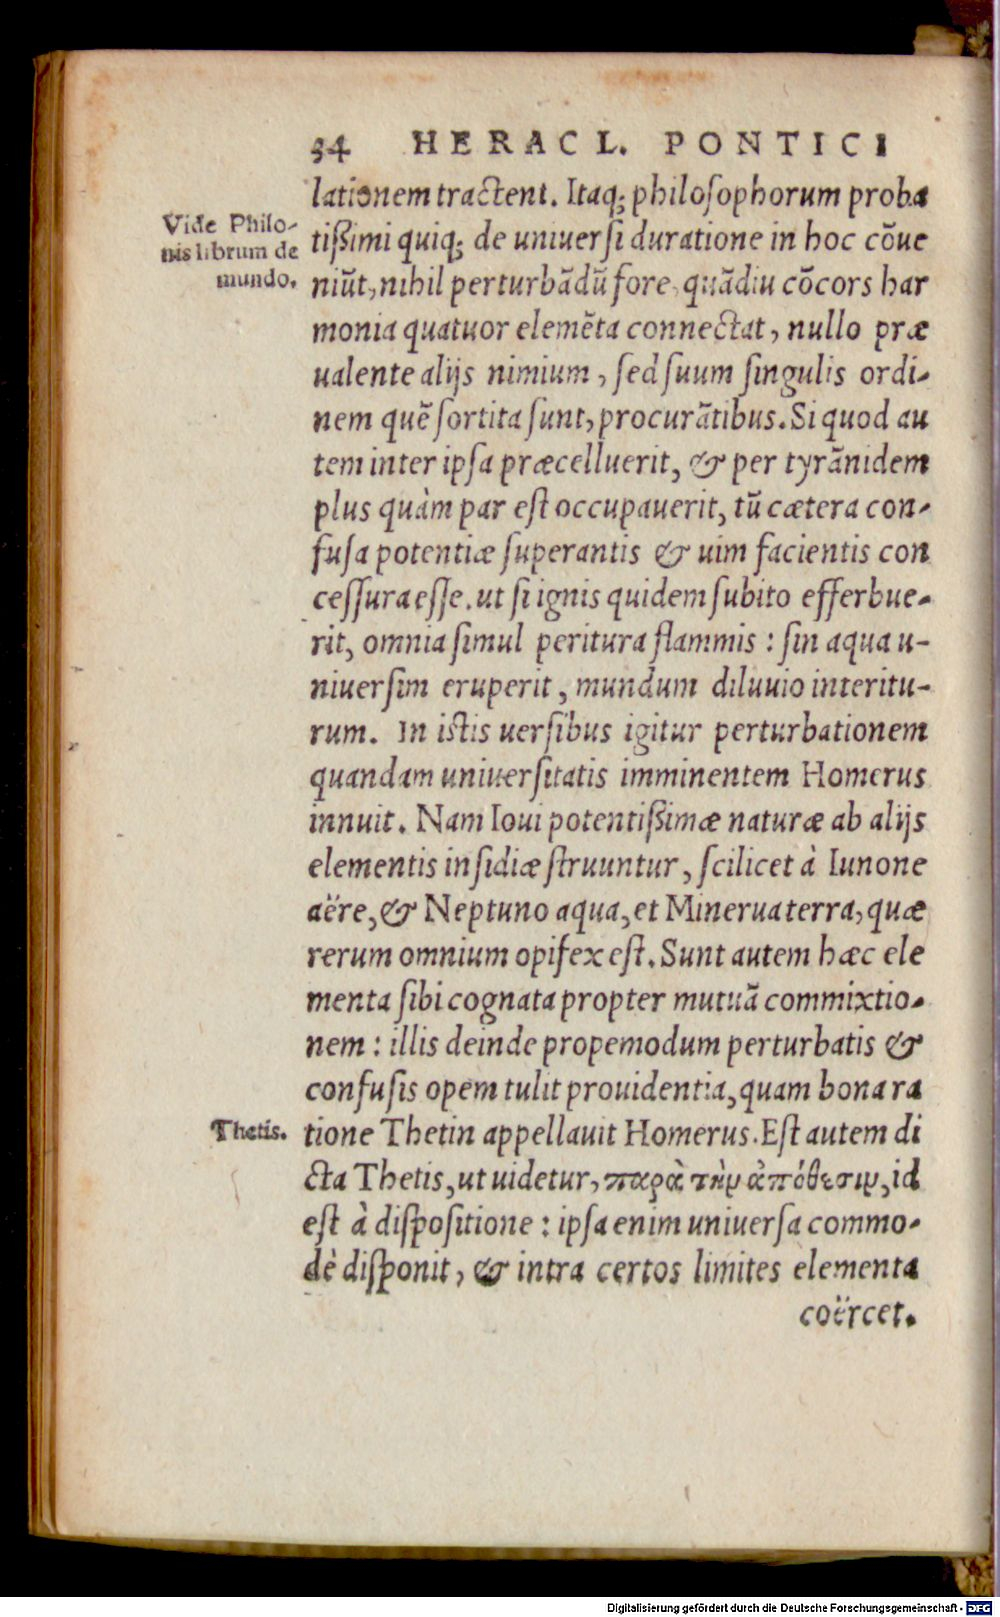 34 HERACL. PONTICI
lationem tractent. Itaq; philosophorum proba
Vide Philo-
nis librum de
mundo.
tißimi quiq; de uniuersi duratione in hoc cōue
niūt, nihil perturbādū fore, quādiu cōcors har
monia quatuor elemēta connectat, nullo præ
ualente alijs nimium, sed suum singulis ordi-
nem quē sortita sunt, procurātibus. Si quod au
tem inter ipsa præcelluerit, & per tyrānidem
plus quàm par est occupauerit, tū cætera con-
fusa potentiæ superantis & uim facientis con
cessura esse. ut si ignis quidem subito efferbue-
rit, omnia simul peritura flammis : sin aqua u-
niuersim eruperit, mundum diluuio interitu-
rum. In istis uersibus igitur perturbationem
quandam uniuersitatis imminentem Homerus
innuit. Nam Ioui potentißimæ naturæ ab alijs
elementis insidiæ struuntur, scilicet à Iunone
aëre, & Neptuno aqua, et Minerua terra, quæ
rerum omnium opifex est. Sunt autem hæc ele
menta sibi cognata propter mutuā commixtio-
nem : illis deinde propemodum perturbatis &
confusis opem tulit prouidentia, quam bona ra
Thetis.
tione Thetin appellauit Homerus. Est autem di
cta Thetis, ut uidetur, παρὰ τὴν ἀπόθεσιν, id
est à dispositione : ipsa enim uniuersa commo-
dè disponit, & intra certos limites elementa
coërcet.
Digitalisierung gefördert durch die Deutsche Forschungsgemeinschaft - DFG